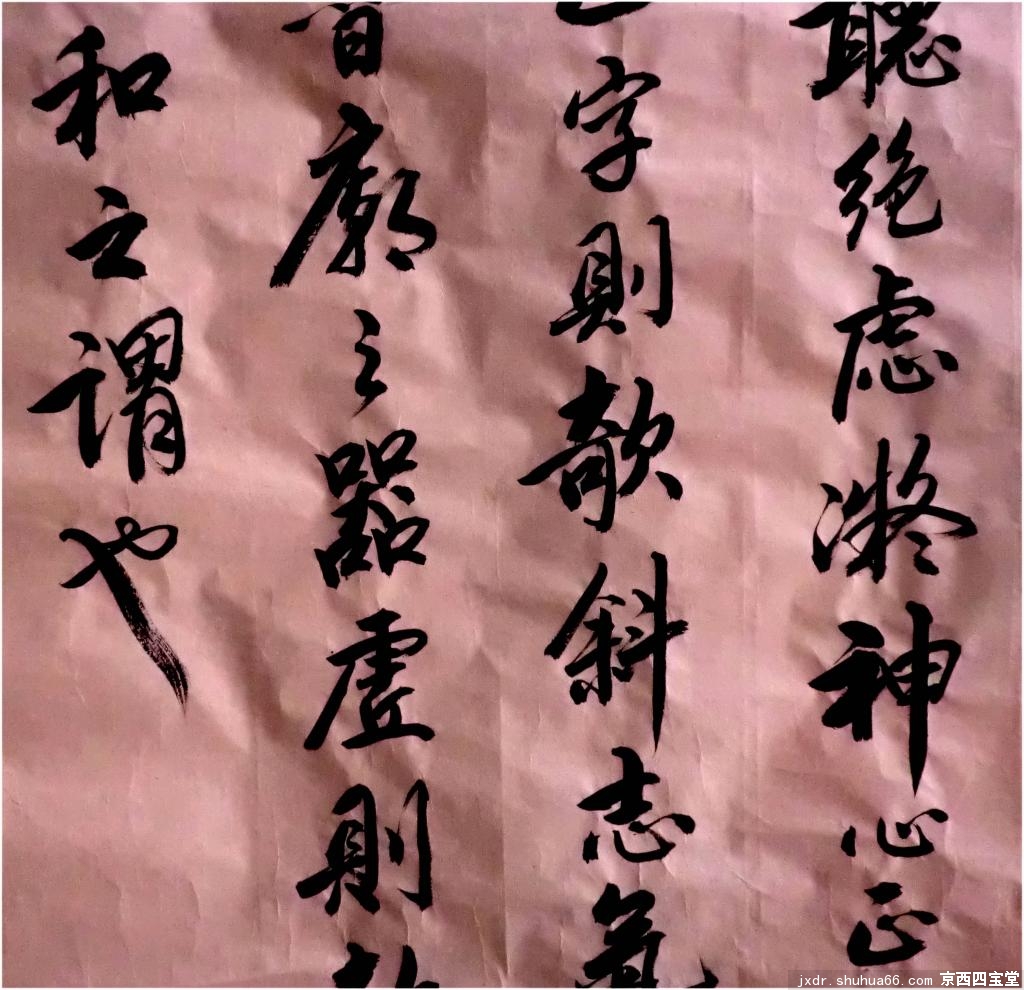 聽绝虑凝神心正
字則欹斜志氣
廟之器虚則欹
和之謂也
jxdr.shuhua66.com 京西四宝堂